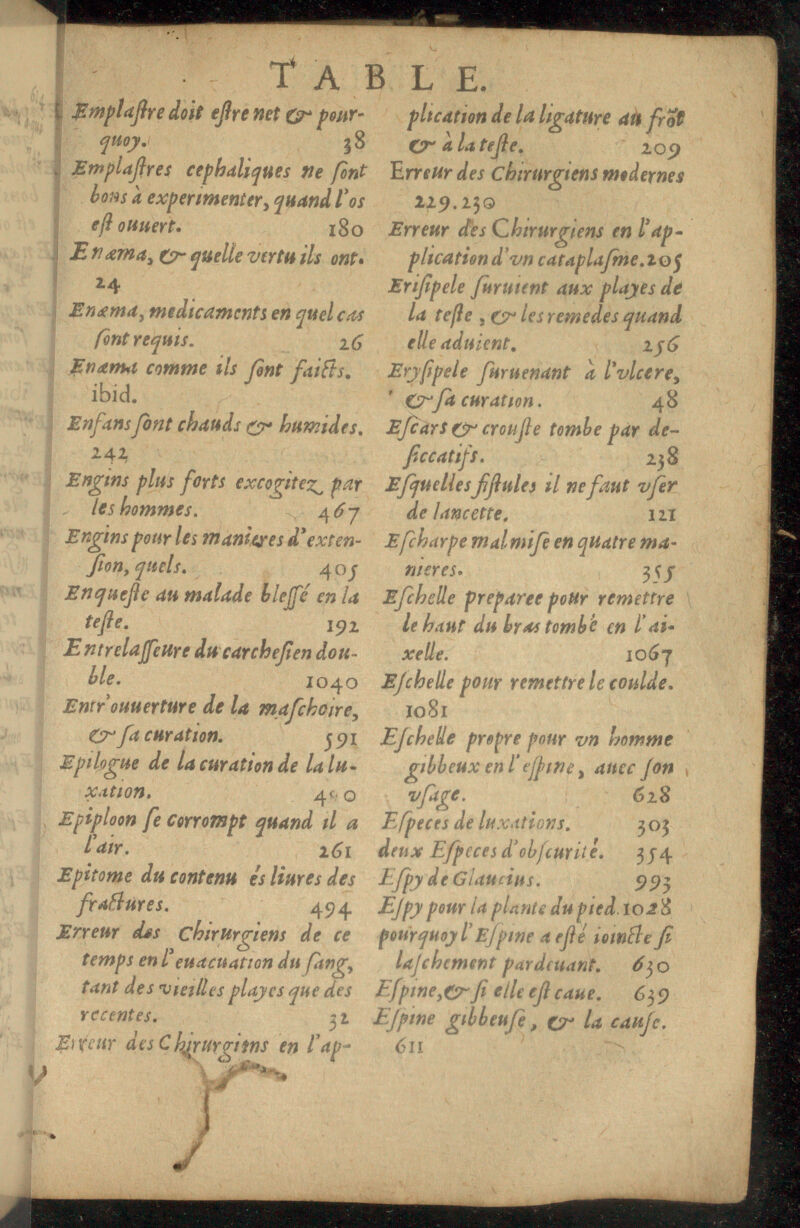 TABLE.
Emplastre doit estre net & pour-
quoy. 38
Emplastres cephaliques ne sont
bons à experimenter, quand l'os
est ouuert. 180
Enæma, & quelle vertu ils ont.
24
Enæma, medicaments en quel cas
sont requis. 26
Enæma comme ils sont faicts.
ibid.
Enfans sont chauds & humides.
242
Engins plus forts excogitez par
les hommes. 467
Engins pour les manieres d'exten-
sion, quels. 405
Enqueste au malade blessé en la
teste. 192
Entrelasseure du carchesien dou-
ble. 1040
Entr'ouuerture de la maschoire,
& sa curation. 591
Epilogue de la curation de la lu-
xation.
Epiploon se corrompt quand il a
l'air. 261
Epitome du contenu és liures des
fractures. 494
Erreur des Chirurgiens de ce
temps en l'euacuation du sang,
tant des vieilles playes que des
recentes. 32
Erreur des Chirurgiens en l'ap-
plication de la ligature au frõt
& à la teste. 209
Erreur des Chirurgiens modernes
229.230
Erreur des Chirurgiens en l'ap-
plication d'vn cataplasme. 205
Erisipele suruient aux playes de
la teste, & les remedes quand
elle aduient. 256
Erysipele suruenant à l'vlcere,
& sa curation. 48
Escars & crouste tombe par de-
siccatifs. 238
Esquelles fistules il ne faut vser
de lancette. 121
Escharpe mal mise en quatre ma-
nieres. 355
Eschelle preparee pour remettre
le haut du bras tombé en l'ai-
xelle. 1067
Eschelle pour remettre le coulde.
1081
Eschelle propre pour vn homme
gibbeux en l'espine, auec son
vsage. 628
Especes de luxations. 303
deux Especes d'obscurité. 354
Espy de Glaucius. 993
Espy pour la plante du pied. 1028
pourquoy l'Espine a esté ioincte si
laschement par deuant. 630
Espine, & si elle est caue. 639
Espine gibbeuse, & la cause.
611